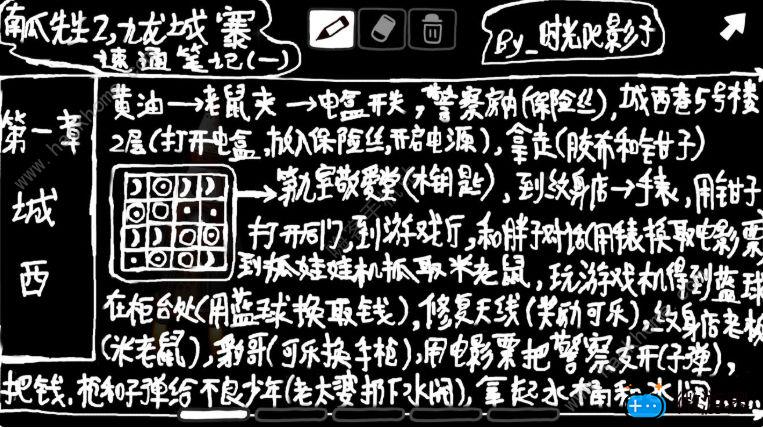 南瓜先生2,九龙城寨
速通笔记(一)
By_时光吧影子
第一章
城
西
黄油→老鼠夹→电盒开关,警察房纳(保险丝),城西巷5号楼
2层(打开电盒,放入保险丝,开启电源),拿走(胶布和钳子)
→第九室敬爱堂(木钥匙),到纹身店→手表,用钳子
打开后门,到游戏厅,和胖子对话(用表换取电影票
到抓娃娃机抓取米老鼠,玩游戏机得到蓝球
在柜台处(用蓝球换取钱),修复天线(奖励可乐),纹身店老板
(米老鼠),豹哥(可乐换手枪),用电影票把警察支开(子弹),
把钱.枪和子弹给不良少年(老太婆扔下水闸),拿起水桶和水闸